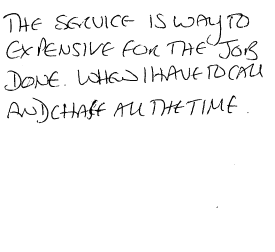 THE SERVICE IS WAY TO
EXPENSIVE FOR THE JOB
DONE. WHEN I HAVE TO CALL
AND CHASE ALL THE TIME.